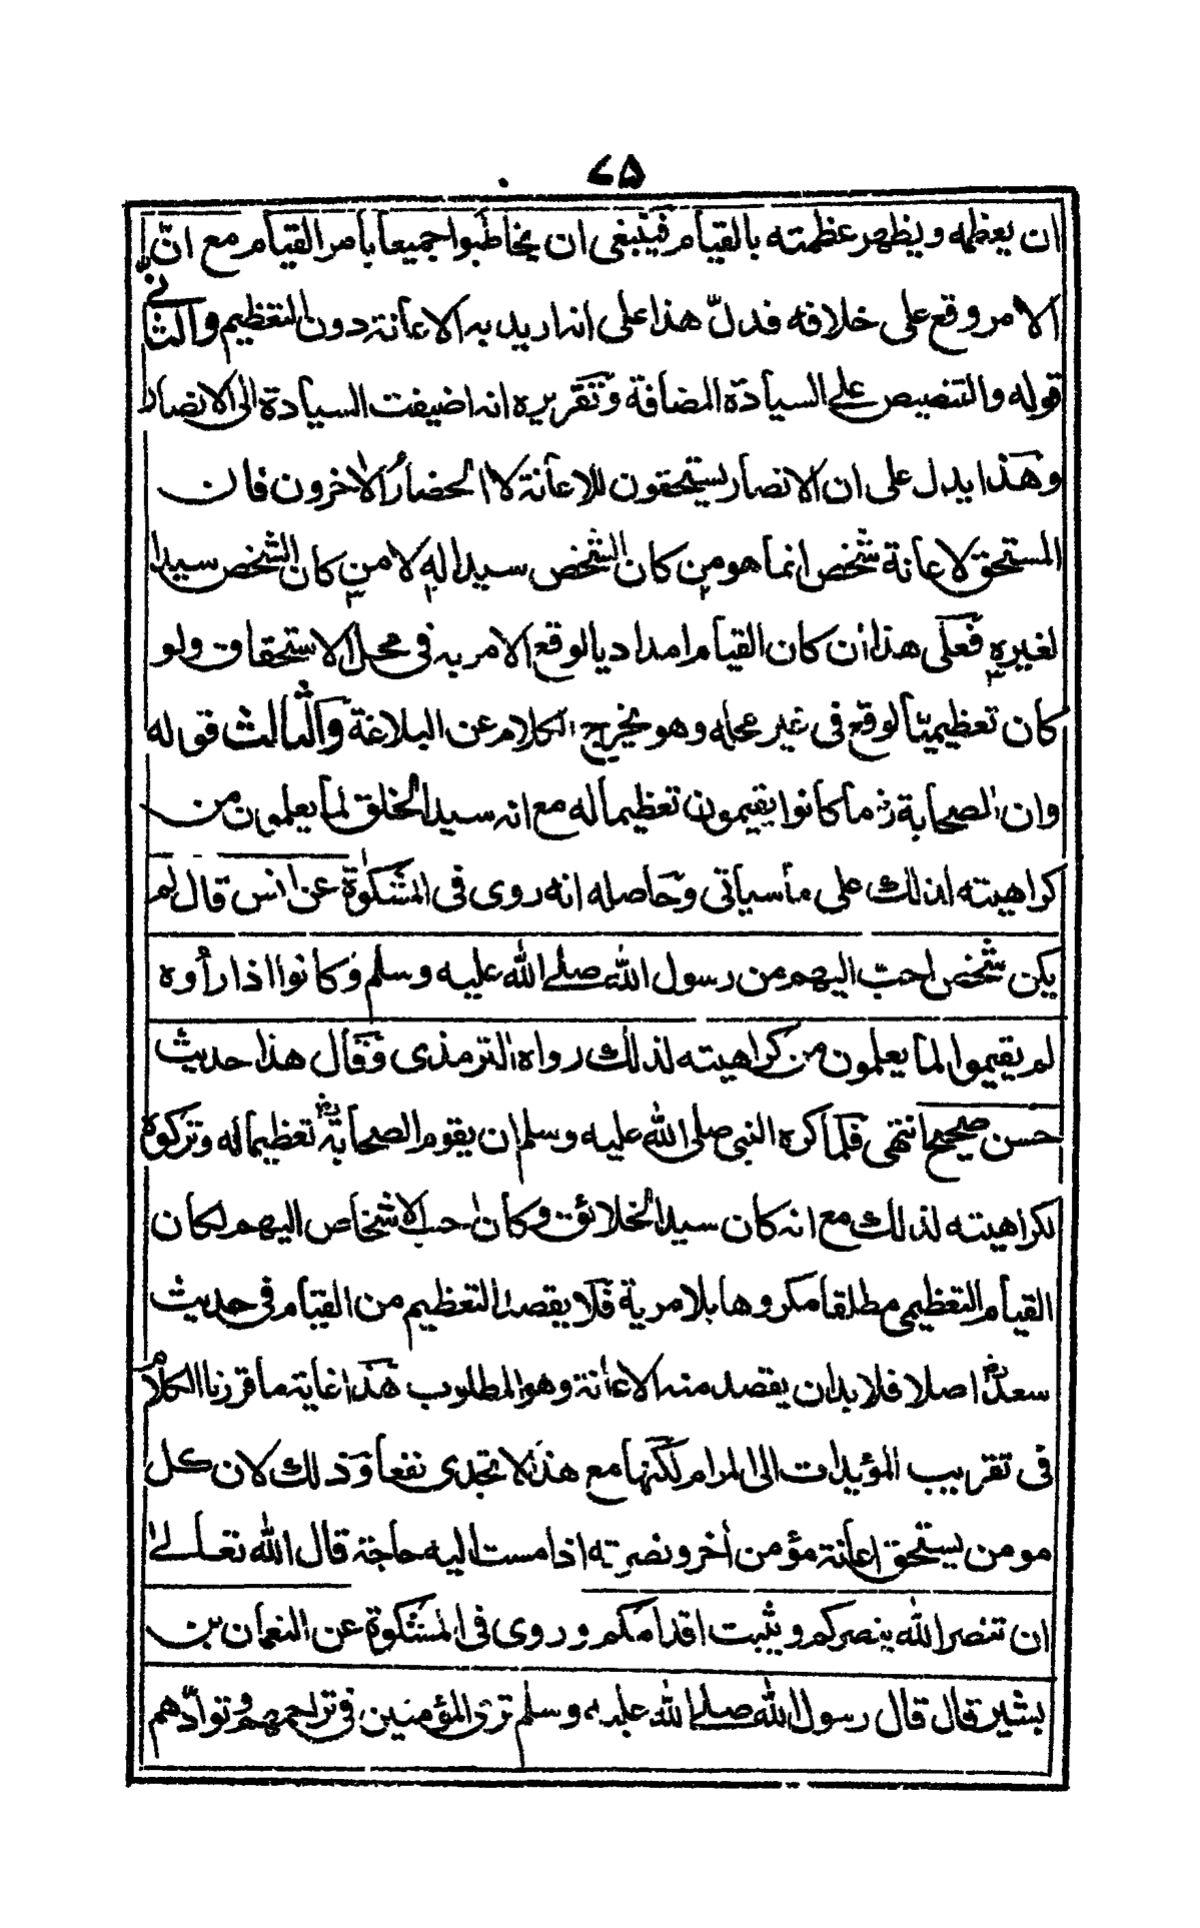 ٧٥
ان يعظمه ويظهر عظمته بالقيام فينبغى ان يخاطبوا جميعا بأمر القيام مع انّ
الامر وقع على خلافه فدلّ هذا على انه اريد به الاعانة دون التعظيم والثانى
قوله والتنصيص على السيادة المضافة وتقريره انه اضيفت السيادة الى الانصار
وهذا يدل على ان الانصار يستحقون للاعانة لا الحضار الاخرون فان
المستحق لاعانة شخص انما هو من كان الشخص سيدا له لا من كان الشخص سيدا
لغيره فعلى هذا ان كان القيام امداديا لوقع الامر به فى محل الاستحقاق ولو
كان تعظيميّا لوقع فى غير محله وهو يخرج الكلام عن البلاغة والثالث قوله
وان الصحابة رض ما كانوا يقيمون تعظيما له مع انه سيد الخلق لما يعلمون من
كراهيته لذلك على ما سيأتى وحاصله انه روى فى المشكوة عن انس قال لم
يكن شخص احبّ اليهم من رسول الله صلے الله عليه وسلم وكانوا اذا رأوه
لم يقيموا لما يعلمون من كراهيته لذلك رواه الترمذى وقال هذا حديث
حسن صحيح انتهى فلما كره النبى صلى الله عليه وسلم ان يقوم الصحابة رض تعظيما له وتركوه
لكراهيته لذلك مع انه كان سيد الخلائق وكان احب الاشخاص اليهم لكان
القيام التعظيمى مطلقا مكروها بلا مرية فلا يقصد التعظيم من القيام فى حديث
سعد رض اصلا فلا بد ان يقصد منه الاعانة وهو المطلوب هذا غاية ما قررنا الكلام
فى تقريب المؤيدات الى المرام لكنها مع هذا لا تجدى نفعا وذلك لان كل
مومن يستحق اعانة مؤمن أخر ونصرته اذا مست اليه حاجة قال الله تعالے
ان تنصر الله ينصركم ويثبت اقدامكم وروى فى المشكوة عن النعمان بن
بشير قال قال رسول الله صلے الله عليه وسلم ترى المؤمنين فى تراحمهم وتوادّهم